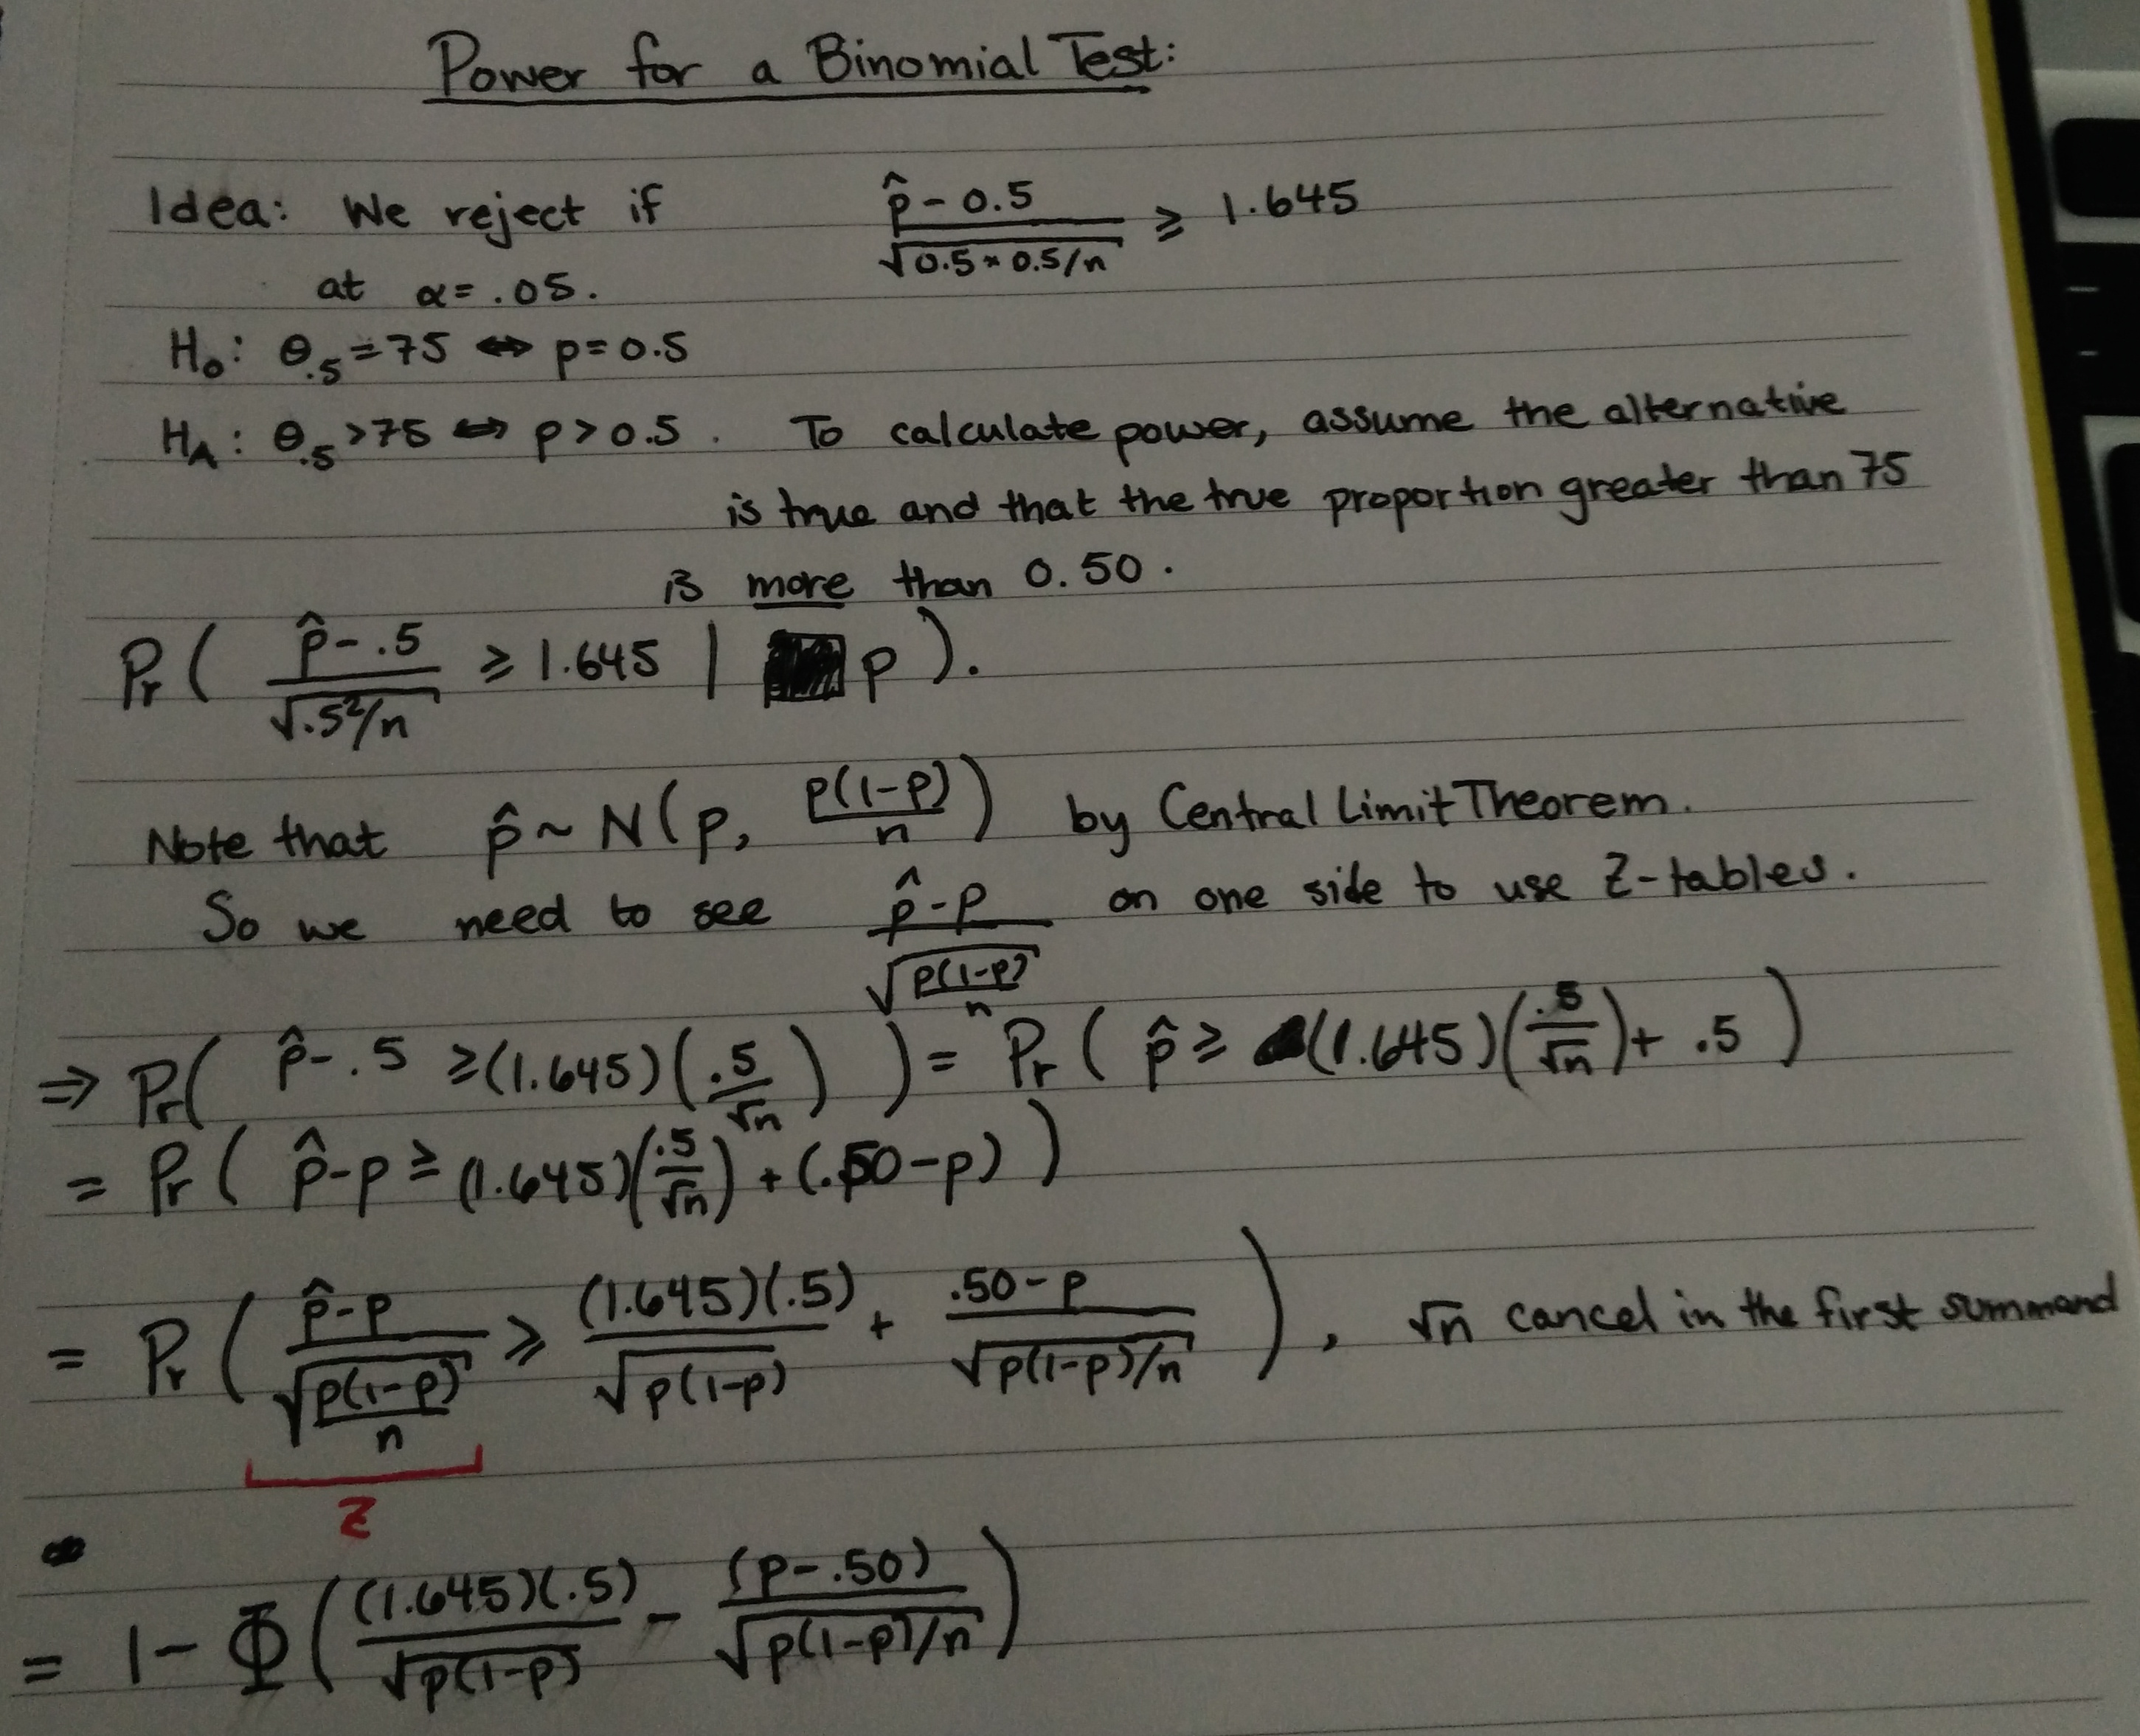 Power for a Binomial Test:
Idea: We reject if (p̂ - 0.5)/√(0.5*0.5/n) ≥ 1.645
at α = .05.
H₀: θ.₅ = 75 ⇔ p = 0.5
H_A: θ.₅ > 75 ⇔ p > 0.5. To calculate power, assume the alternative
is true and that the true proportion greater than 75
is more than 0.50.
Pr( (p̂ - .5)/√(.5²/n) ≥ 1.645 | p ).
Note that p̂ ~ N(p, p(1-p)/n) by Central Limit Theorem.
So we need to see (p̂ - p)/√(p(1-p)/n) on one side to use Z-tables.
⇒ Pr( p̂ - .5 ≥ (1.645)(.5/√n) ) = Pr( p̂ ≥ (1.645)(.5/√n) + .5 )
= Pr( p̂ - p ≥ (1.645)(.5/√n) + (.50 - p) )
= Pr( (p̂ - p)/√(p(1-p)/n) ≥ (1.645)(.5)/√(p(1-p)) + (.50 - p)/√(p(1-p)/n) ), √n cancel in the first summand
Z
= 1 - Φ( (1.645)(.5)/√(p(1-p)) - (p - .50)/√(p(1-p)/n) )